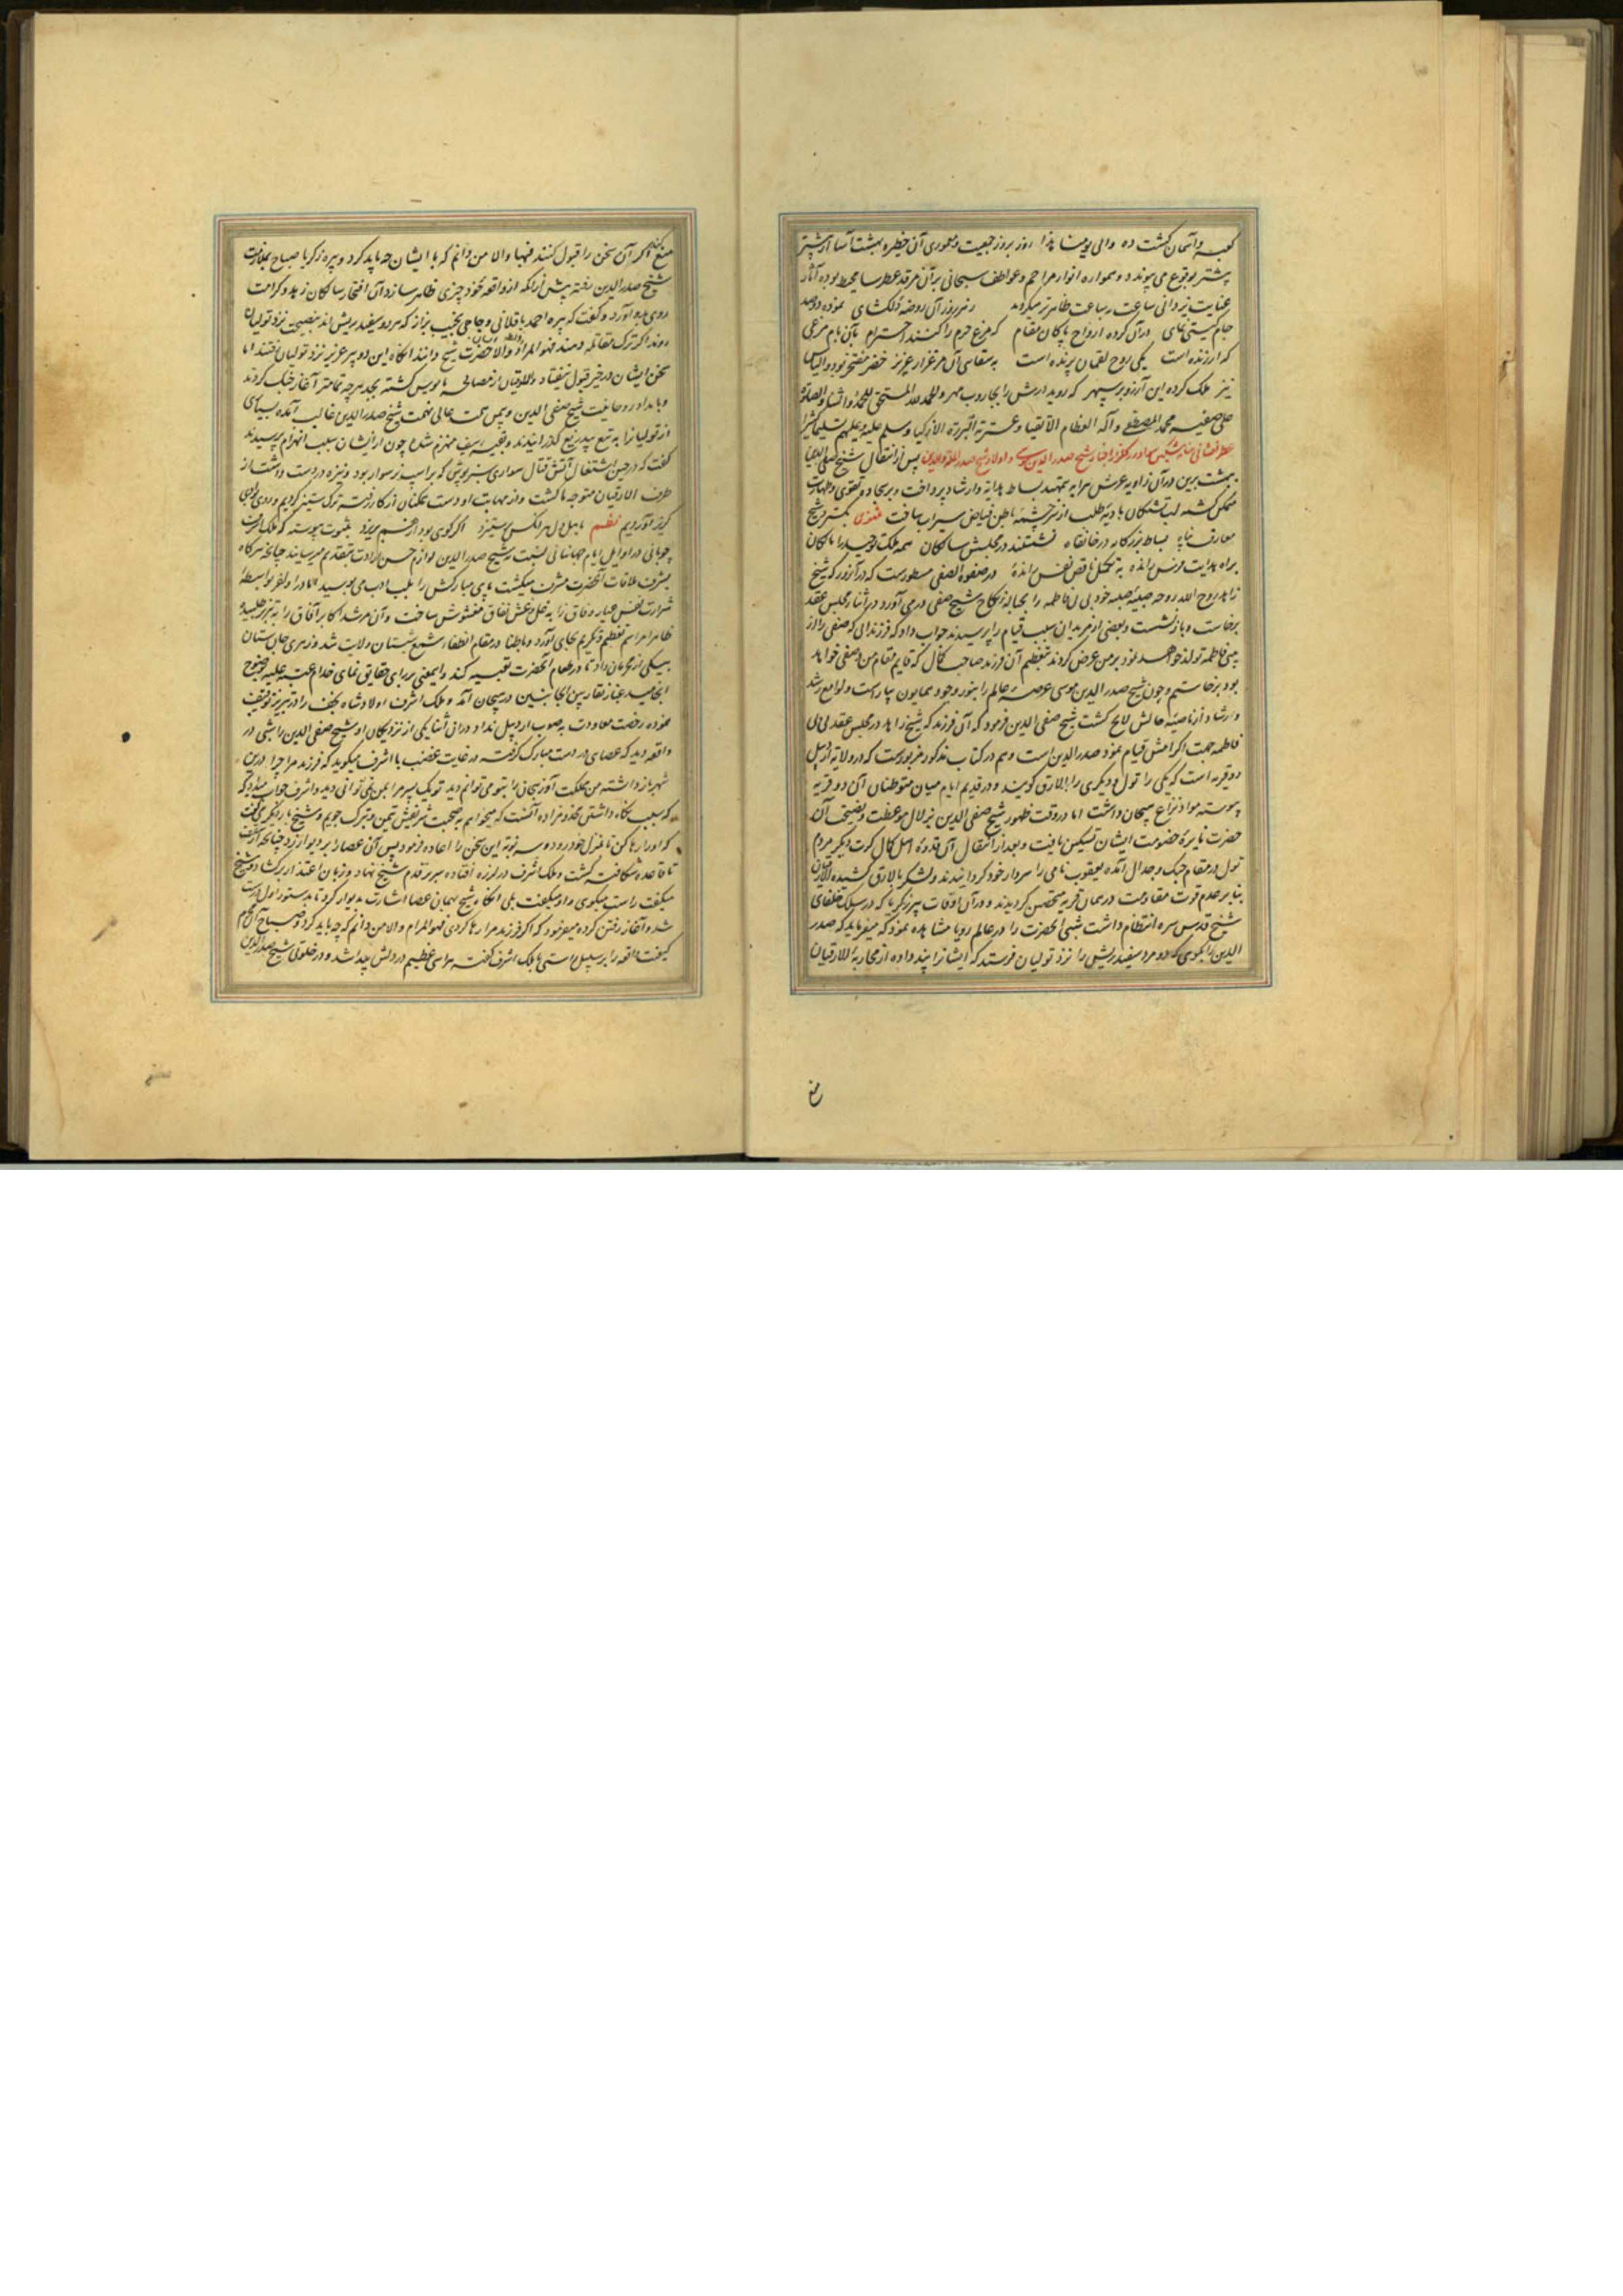 کعبه و آسمان گشت ده والی یومنا هذا روز بروز جمعیت و معموری آن خطیره بهشت آسا از پیشتر
پیشتر بوقوع می پیوندد و همواره انوار مراحم و عواطف سبحانی بر آن مرقد عطرسا محیط بوده آثار
عنایت یزدانی ساعت بساعت ظاهرتر میگردد ز نرروز آن روضه دلکشای نموده دو صد
جام گیتی نمای در آن کرده ارواح پاکان مقام که مرغ حرم را کنند احترام بآن بام مرغی
که ارزنده است یکی روح لقمان پرنده است به سقایی آن مرغزار عزیز خضر مفتخر بود و الیاس
نیز ملک کرده این آرزو بر سپهر که روبد درش را بجاروب مهر والحمد لله المستحق للحمد والثناء والصلوة
علی صفیه محمد المصطفی و آله العظام الاتقیاء و عترته البررة الازکیا وسلم علیه وعلیهم تسلیما کثیرا
اخبار شیخ صدر الدین موسی و اولاد شیخ صدر الملة والدین پس از انتقال شیخ صفی الدین
بهشت برین در آن زاویه عرش سرایه بتمهید بساط هدایه وارشاد پرداخت و بر سجاده تقوی وطهارت
متمکن گشته لب تشنگان بادیهٔ طلب از سرچشمهٔ باطن فیاض سیراب ساخت مثنوی بگسترد شیخ
معارف پناه بساط بزرگانه در خانقاه نشستند در مجلس سالکان همه ملک توحید را مالکان
براه هدایت فرس رانده به تکمیل ناقص نفس رانده در صفوة الصفی مسطورست که در آنروز که شیخ
زاهد روح الله روحه صبیهٔ صلبیه خود بی بی فاطمه را بحباله نکاح شیخ صفی در می آورد در اثناء مجلس عقد
برخاست و باز نشست و بعضی از مریدان سبب قیام را پرسیدند جواب داد که فرزندانی که صفی را از
بی بی فاطمه تولد خواهد نمود بر من عرض کردند تعظیم آن فرزند صاحب کمال که قایم مقام من و صفی خواهد
بود برخاستم و چون شیخ صدر الدین موسی عرصهٔ عالم را بنور وجود همایون بیاراست و لوامع رشد
وارشاد از ناصیهٔ حالش لایح گشت شیخ صفی الدین فرمود که آن فرزند که شیخ زاهد در مجلس عقد بی بی
فاطمه جهت اکرامش قیام نمود صدر الدین است وهم در کتاب مذکور مزبورست که در ولایة اردبیل
دو قریه است که یکی را تول و دیگری را الارق گویند و در قدیم ایام میان متوطنان آن دو قریه
پیوسته مواد نزاع هیجان داشت اما در وقت ظهور شیخ صفی الدین بزلال موعظت و نصیحت آن
حضرت نایرهٔ خصومت ایشان تسکین یافت و بعد از انتقال آن قدوهٔ اهل کمال کرت دیگر مردم
تول در مقام جنگ وجدال آمده یعقوب نامی را سردار خود گردانیدند و لشکر بالارق کشیده الارقیان
بنا بر عدم قوت مقاومت در همان قریه متحصن گردیدند و در آن اوقات پیر زکریا که در سلک خلفای
شیخ قدس سره انتظام داشت شبی آنحضرت را در عالم رویا مشاهده نمود که میفرماید که صدر
الدین را بگوی که دو مرد سفید ریش را نزد تولیان فرستد که ایشانرا پند داده از محاربهٔ الارقیان
منع
منع کنند اگر آن سخن را قبول کنند فبها والا من دانم که با ایشان چه باید کرد و پیره زکریا صباح بملازمت
شیخ صدر الدین رفته پیش از آنکه از واقعهٔ خود چیزی ظاهر سازد آن افتخار سالکان زهد و کرامت
روی بدو آورد و گفت که پیره احمد باقلانی و حاجی نجیب بزاز که مرد و سفید ریش اند بنصیحت نزد تولیان
روند اگر ترک مقاتله دهند فهو المراد والا حضرت شیخ داند آنگاه این دو پیر عزیز نزد تولیان رفتند اما
سخن ایشان در حیز قبول نیفتاد والارقیان از مصالحه مایوس گشته بجد هر چه تمامتر آغاز جنگ کردند
و بامداد روحانیت شیخ صفی الدین و بیمن همت عالی نهمت شیخ صدر الدین غالب آمده بسیاری
از تولیانرا به تیغ بیدریغ گذرانیدند و بقیه سیف منهزم شده چون از ایشان سبب انهزام پرسیدند
گفت که در حین اشتغال آتش قتال سواری سبزپوش که بر اسب سوار بود و نیزه در دست داشت از
طرف الارقیان متوجه ما گشت و از مهابت او دست همگنان از کار رفته ترک ستیز کردیم و روی بوادی
گریز آوردیم نظم با پیل دل هر آنکس ستیزد اگر کوهی بود از هم بریزد بثبوت پیوسته که ملک اشرف
چوپانی در اوایل ایام جهانبانی نسبت به شیخ صدر الدین لوازم حسن ارادت بتقدیم میرسانید چنانچه هرگاه
بشرف ملاقات آنحضرت مشرف میگشت پای مبارکش را بلب ادب می بوسید اما در اواخر بواسطهٔ
شرارت نفس عیار وفاق را به غل وغش نفاق مغشوش ساخت و آن مرشد اکابر آفاق را به تبریز طلبیده
ظاهرا مراسم تعظیم و تکریم بجای آورد و باطنا در مقام انطفاء شمع شبستان ولایت شد و زهری جان ستان
بیکی از محرمان داد تا در طعام آنحضرت تعبیه کند و این معنی بر رای حقایق نمای خدام عتبهٔ علیه بوضوح
انجامید غبار نقار بین الجانبین در هیجان آمد و ملک اشرف اولاد شاه نجف را در تبریز توقیف
نموده رخصت معاودت به صوب اردبیل نداد و در آن اثنا یکی از نزدیکان او شیخ صفی الدین را شبی در
واقعه دید که عصای در دست مبارک گرفته در غایت غضب با اشرف میگوید که فرزند مرا چرا درین
شهر باز داشته من مملکت آذربیجان را بتو می توانم دید تو یک پسر مرا بمن نمی توانی دید و اشرف جواب میداد که
که سبب نگاه داشتن مخدوم زاده آنست که میخواهم به صحبت شریفش تیمن و تبرک جویم و شیخ بار دیگر می گفت
که او را رها کن تا بمنزل خود رود و سه نوبة این سخن را اعاده فرمود پس آن عصا را بر دیوار زد چنانچه از سقف
تا قاعده شکافته گشت و ملک اشرف در لرزه افتاده سر بر قدم شیخ نهاد و زبان اعتذار بر گشاد و شیخ
میگفت راست میگوی و او میگفت بلی آنگاه شیخ بهمان عصا اشارت بدیوار کرد تا بدستور اول درست
شد و آغاز رفتن کرده میفرمود که اگر فرزند مرا رها کردی فهو المرام والا من دانم که چه باید کرد و صباح آن محرم
کیفیت واقعه را بر سبیل راستی با ملک اشرف گفته هراسی عظیم در دلش پیدا شد و در خلوتی شیخ صدر الدین